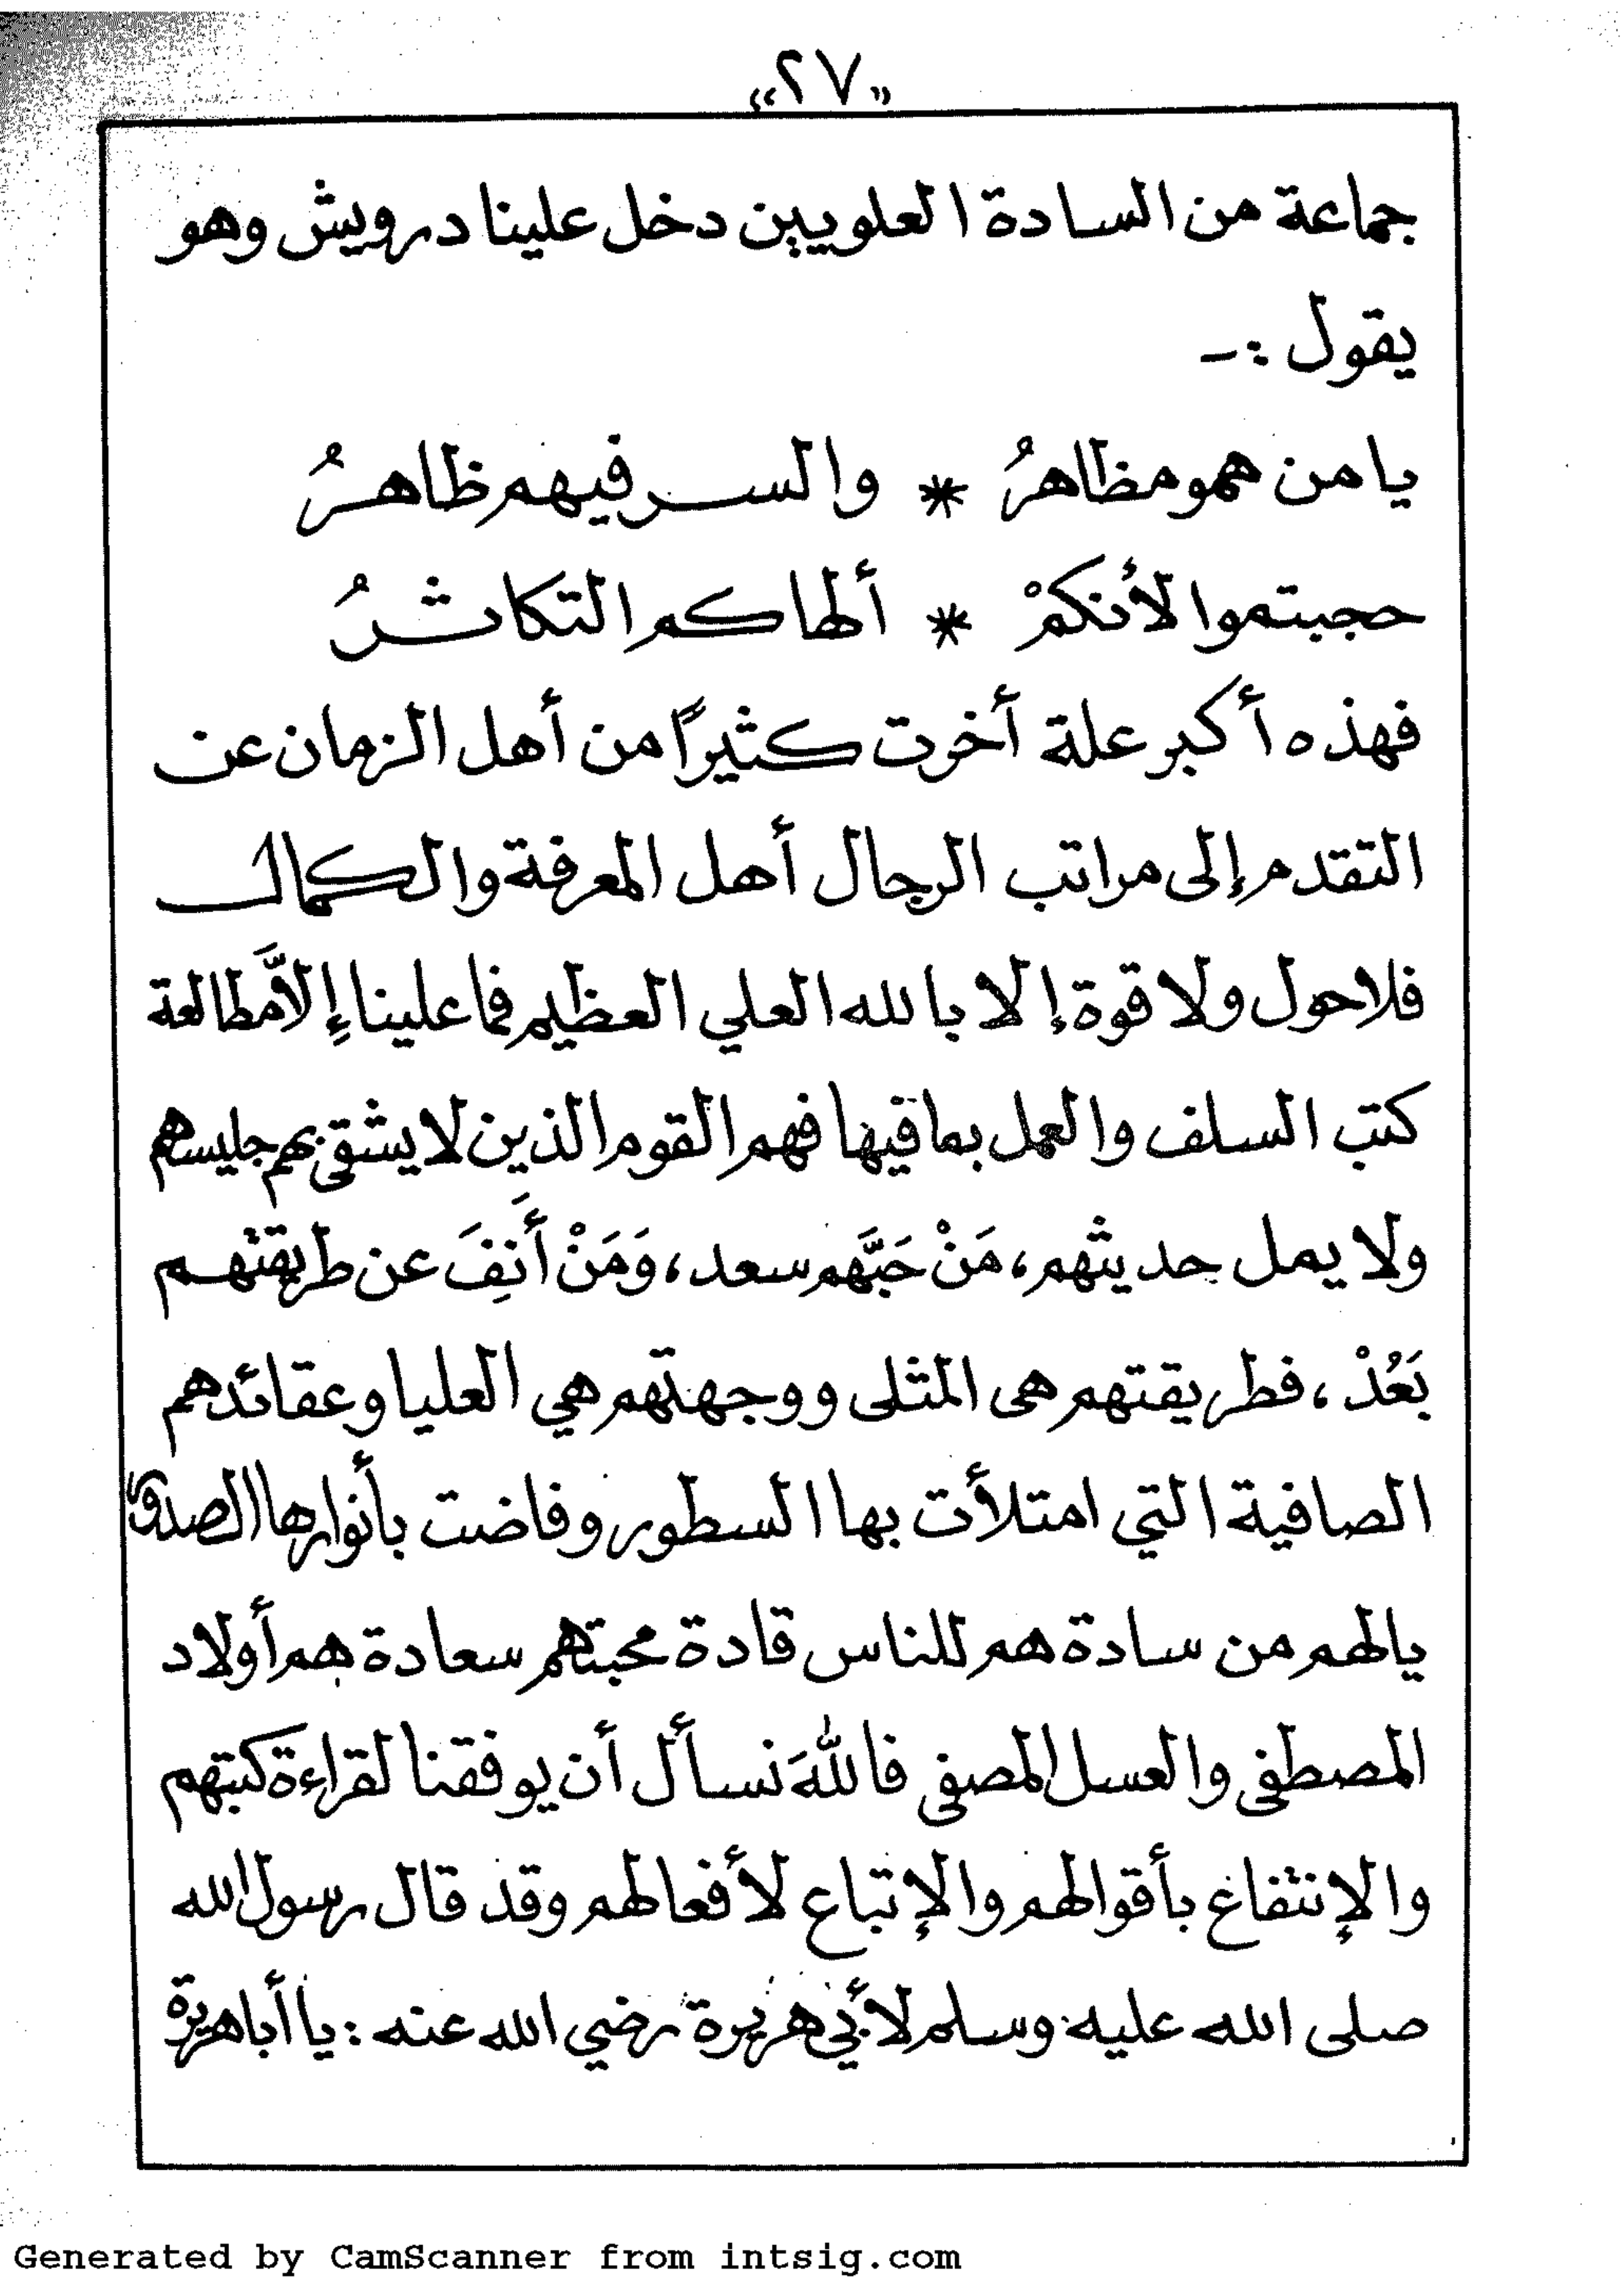 «٢٧»
جماعة من السادة العلويين دخل علينا درويش وهو
يقول :-
يا من همو مظاهرُ * والسر فيهم ظاهرُ
حجبتموا لأنكمْ * ألهاكم التكاثرُ
فهذه أكبر علة أخرت كثيرًا من أهل الزمان عن
التقدم إلى مراتب الرجال أهل المعرفة والكمال
فلاحول ولا قوة إلا بالله العلي العظيم فما علينا إلاَّ مطالعة
كتب السلف والعمل بما فيها فهم القوم الذين لا يشقى بهم جليسهم
ولا يمل حديثهم، مَنْ حَبَّهم سعد، وَمَنْ أَنِفَ عن طريقتهم
بَعُدْ، فطريقتهم هى المثلى ووجهتهم هي العليا وعقائدهم
الصافية التي امتلأت بها السطور وفاضت بأنوارها الصدور
يالهم من سادة هم للناس قادة محبتهم سعادة هم أولاد
المصطفى والعسل المصفى فاللهَ نسأل أن يوفقنا لقراءة كتبهم
والإنتفاغ بأقوالهم والإتباع لأفعالهم وقد قال رسول الله
صلى الله عليه وسلم لأبي هريرة رضي الله عنه : يا أبا هريرة
Generated by CamScanner from intsig.com